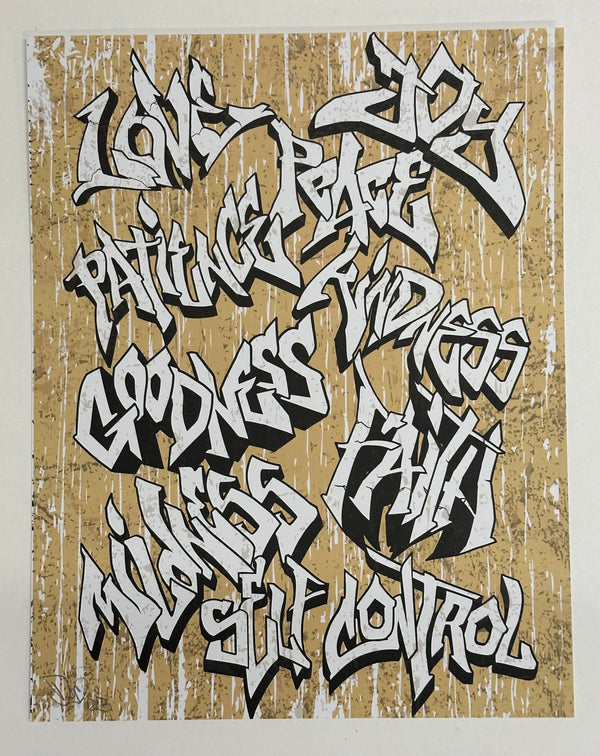 LOVE JOY
PEACE
PATIENCE
KINDNESS
GOODNESS
FAITH
MILDNESS
SELF CONTROL